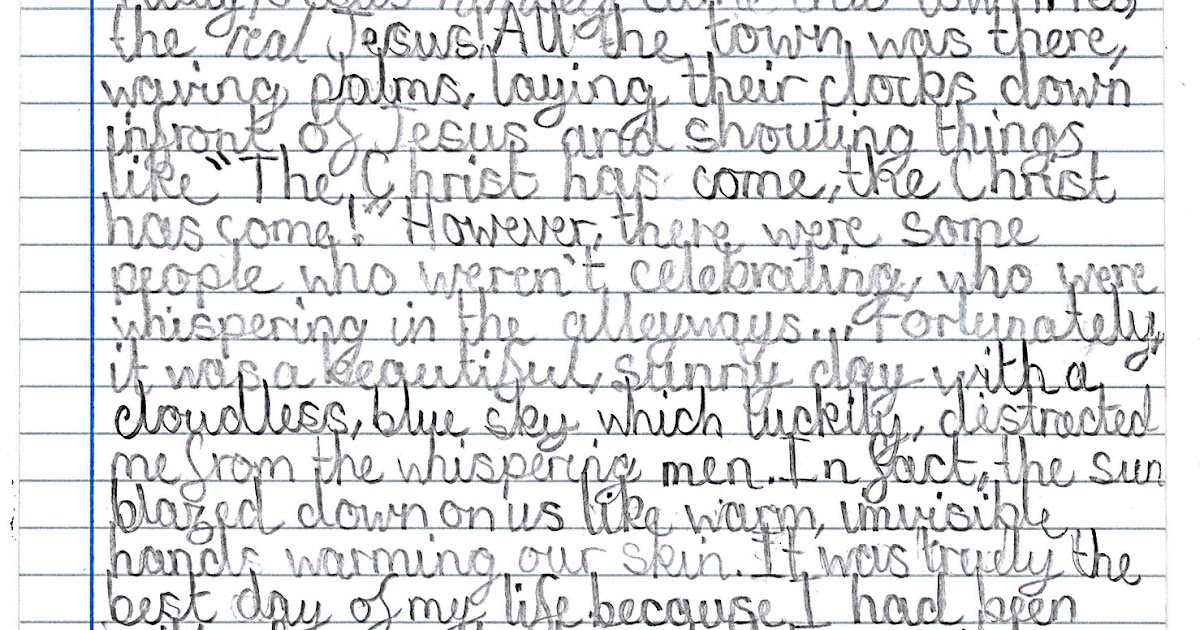 the real Jesus! All the town was there,
waving palms, laying their clocks down
infront of Jesus and shouting things
like "The Christ has come, the Christ
has come!" However, there were some
people who weren't celebrating, who were
whispering in the alleyways... Fortunately,
it was a beautiful, sunny day with a
cloudless, blue sky which luckily, distracted
me from the whispering men. In fact, the sun
blazed down on us like warm, invisible
hands warming our skin. It was truely the
best day of my life because I had been